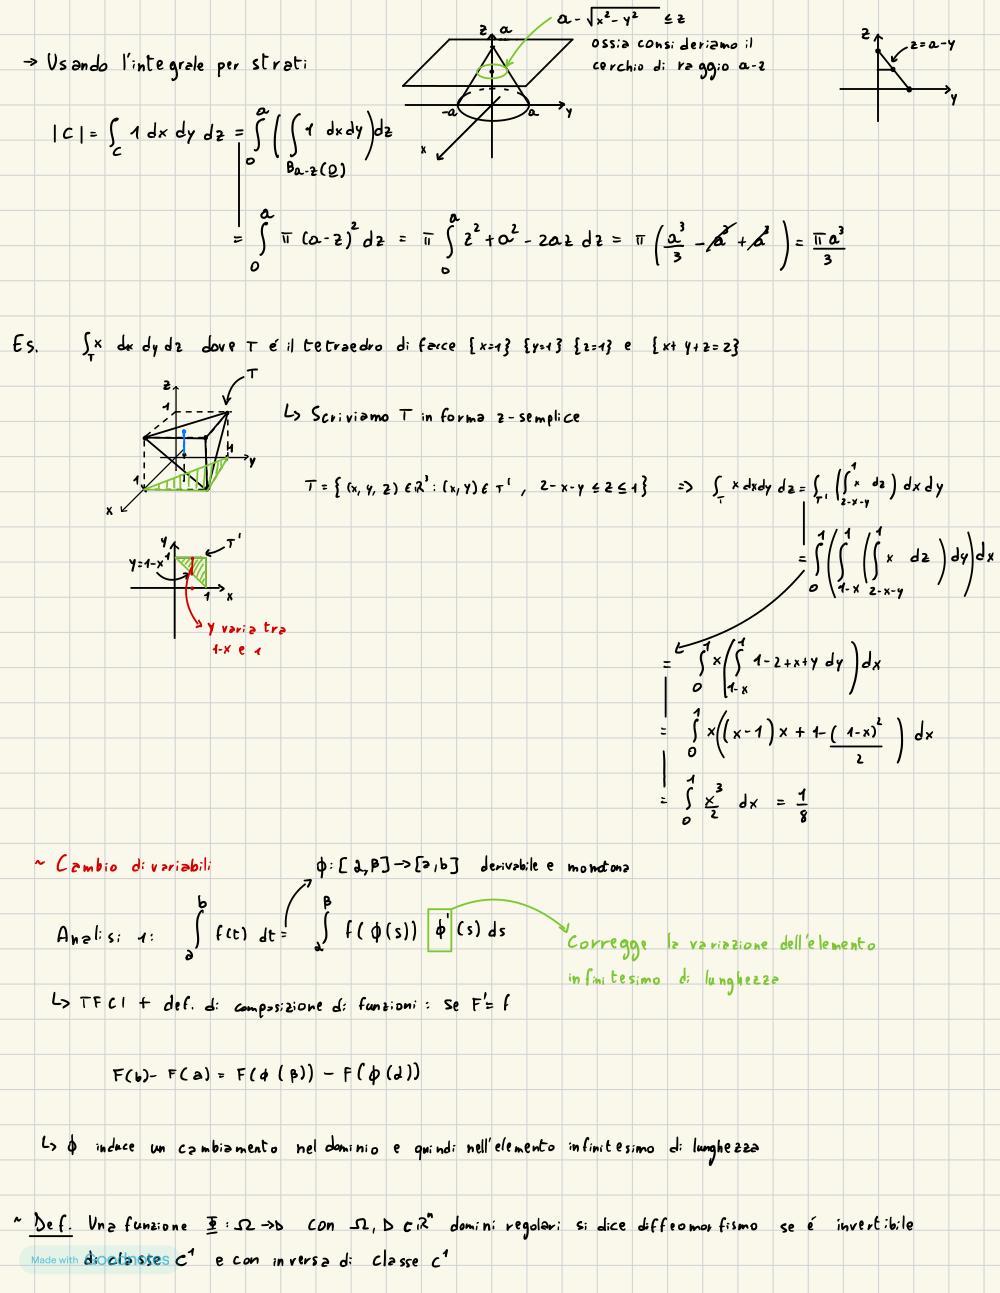 a - √x²-y² ≤ z
→ Usando l'integrale per strati
ossia consideriamo il
cerchio di raggio a-z
z a
-a a y
x
z
z=a-y
y
|C| = ∫_C 1 dx dy dz = ∫_0^a ( ∫_{B_{a-z}(0)} 1 dxdy ) dz
= ∫_0^a π (a-z)² dz = π ∫_0^a z² + a² - 2az dz = π ( a³/3 - a³ + a³ ) = πa³/3
Es. ∫_T x dx dy dz dove T é il tetraedro di facce {x=1} {y=1} {z=1} e {x+y+z=2}
z T
1
1 y
1
x
↳ Scriviamo T in forma z-semplice
T = { (x, y, z) ∈ ℝ³ : (x, y) ∈ T' , 2-x-y ≤ z ≤ 1 } ⇒ ∫_T x dxdy dz = ∫_{T'} ( ∫_{2-x-y}^1 x dz ) dx dy
= ∫_0^1 ( ∫_{1-x}^1 ( ∫_{2-x-y}^1 x dz ) dy ) dx
y T'
y=1-x 1
1 x
y varia tra
1-x e 1
= ∫_0^1 x ( ∫_{1-x}^1 1-2+x+y dy ) dx
= ∫_0^1 x ( (x-1) x + 1-(1-x)²/2 ) dx
= ∫_0^1 x³/2 dx = 1/8
~ Cambio di variabili
ϕ: [α,β] → [a,b] derivabile e monotona
Analisi 1: ∫_a^b f(t) dt = ∫_α^β f(ϕ(s)) ϕ'(s) ds
Corregge la variazione dell'elemento
infinitesimo di lunghezza
↳ TFCI + def. di composizione di funzioni : se F'= f
F(b)- F(a) = F(ϕ(β)) - F(ϕ(α))
↳ ϕ induce un cambiamento nel dominio e quindi nell'elemento infinitesimo di lunghezza
~ Def. Una funzione Φ : Ω → D con Ω, D ⊂ ℝⁿ domini regolari si dice diffeomorfismo se é invertibile
di classe C¹ e con inversa di classe C¹
Made with Goodnotes